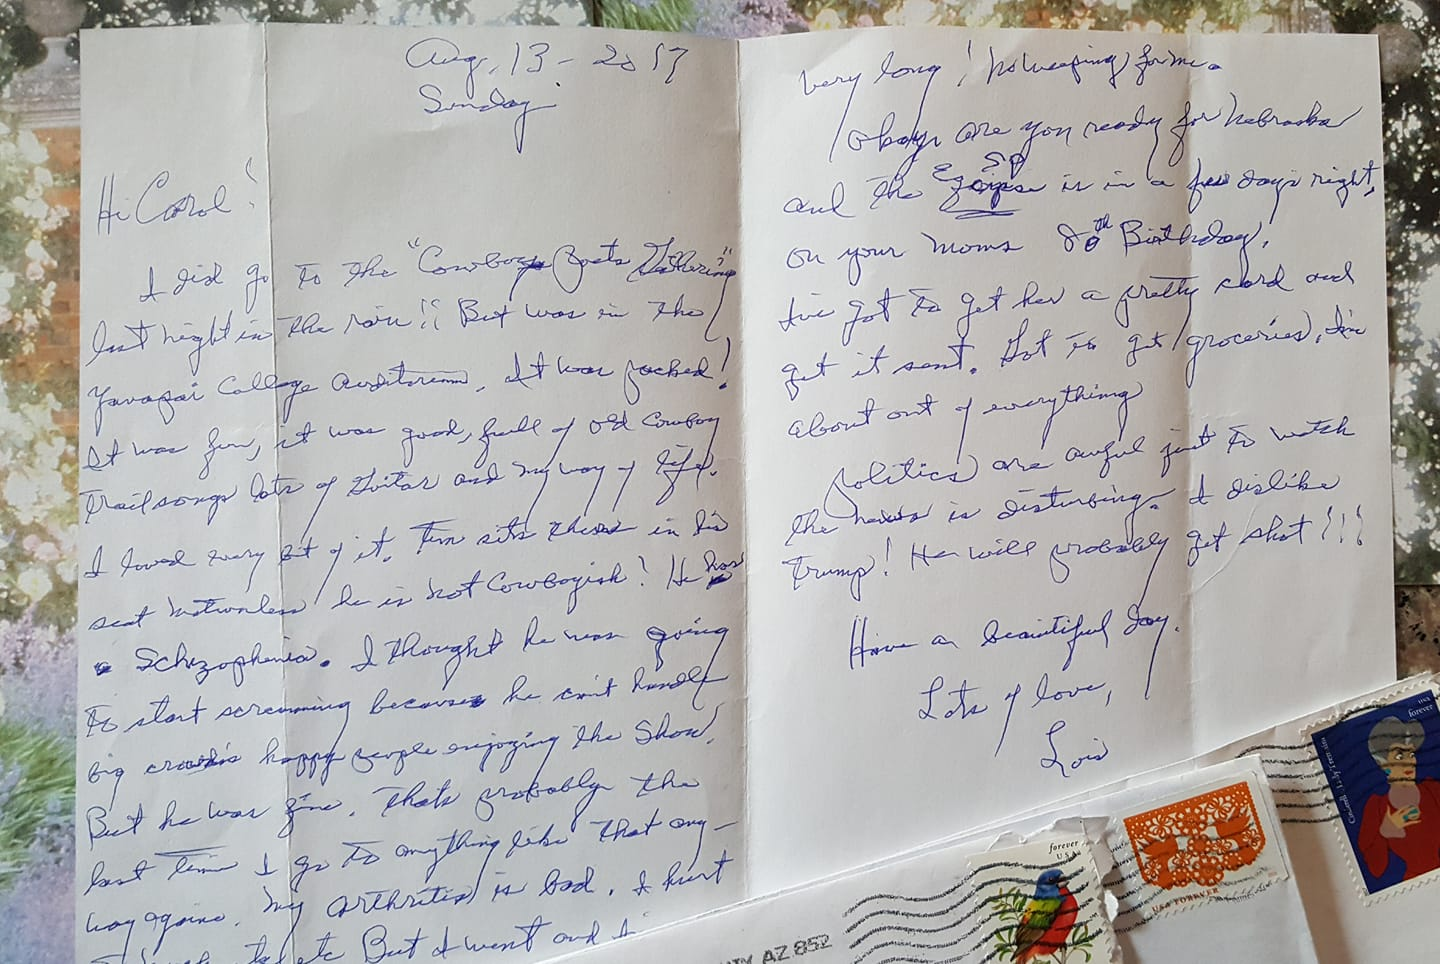 Aug, 13 - 2017
Sunday
Hi Carol!
I did go to the "Cowboy Poets Gathering"
last night in the rain!! But was in the
Yavapai College Auditorium. It was packed!
It was fun, it was good, full of old Cowboy
Trail songs lots of Guitar and my way of life.
I loved every bit of it. Tim sits there in his
seat motionless he is not Cowboyish! He has
Schizophenia. I thought he was going
to start screaming because he can't handle
big crowds happy people enjoying the Show!
But he was fine. That's probably the
last time I go to anything like that any-
way again. My arthritis is bad. I hurt
etc But I went and I
very long! No weeping for me.
Okay are you ready for Nebraska
and the Eclipse is in a few days right,
on your Moms 80th Birthday,
I've got to get her a pretty card and
get it sent. Got to get groceries, I'm
about out of everything
politics are awful just to watch
the news is disturbing. I dislike
Trump! He will probably get shot!!!
Have a beautiful day.
Lots of love,
Lois
AZ 852
forever
USA
USA FOREVER
usa
forever